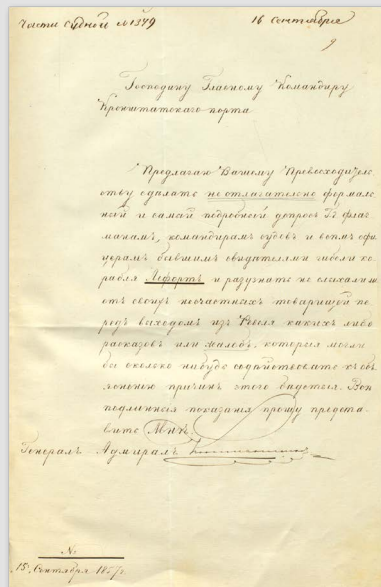 Части Судного № 1349
16 Сентября
9
Господину Главному Командиру
Кронштатскаго порта
Предлагаю Вашему Превосходитель-
ству сделать не отлагательно формаль-
ный и самый подробной допрос Гг. флаг-
манам, командирам судов и всем офи-
церам бывшим свидетелями гибели ко-
рабля Лефортъ и разузнать не слыхали ли
от своих несчастных товарищей пе-
ред выходом из Ревеля каких либо
расказов или жалоб, которыя могли
бы сколько нибудь содействовать к объ-
яснению причин этого бедствия. Все
подлинныя показания прошу предста-
вить Мне.
Генерал Адмирал Константин
№
15 Сентября 1857 г.